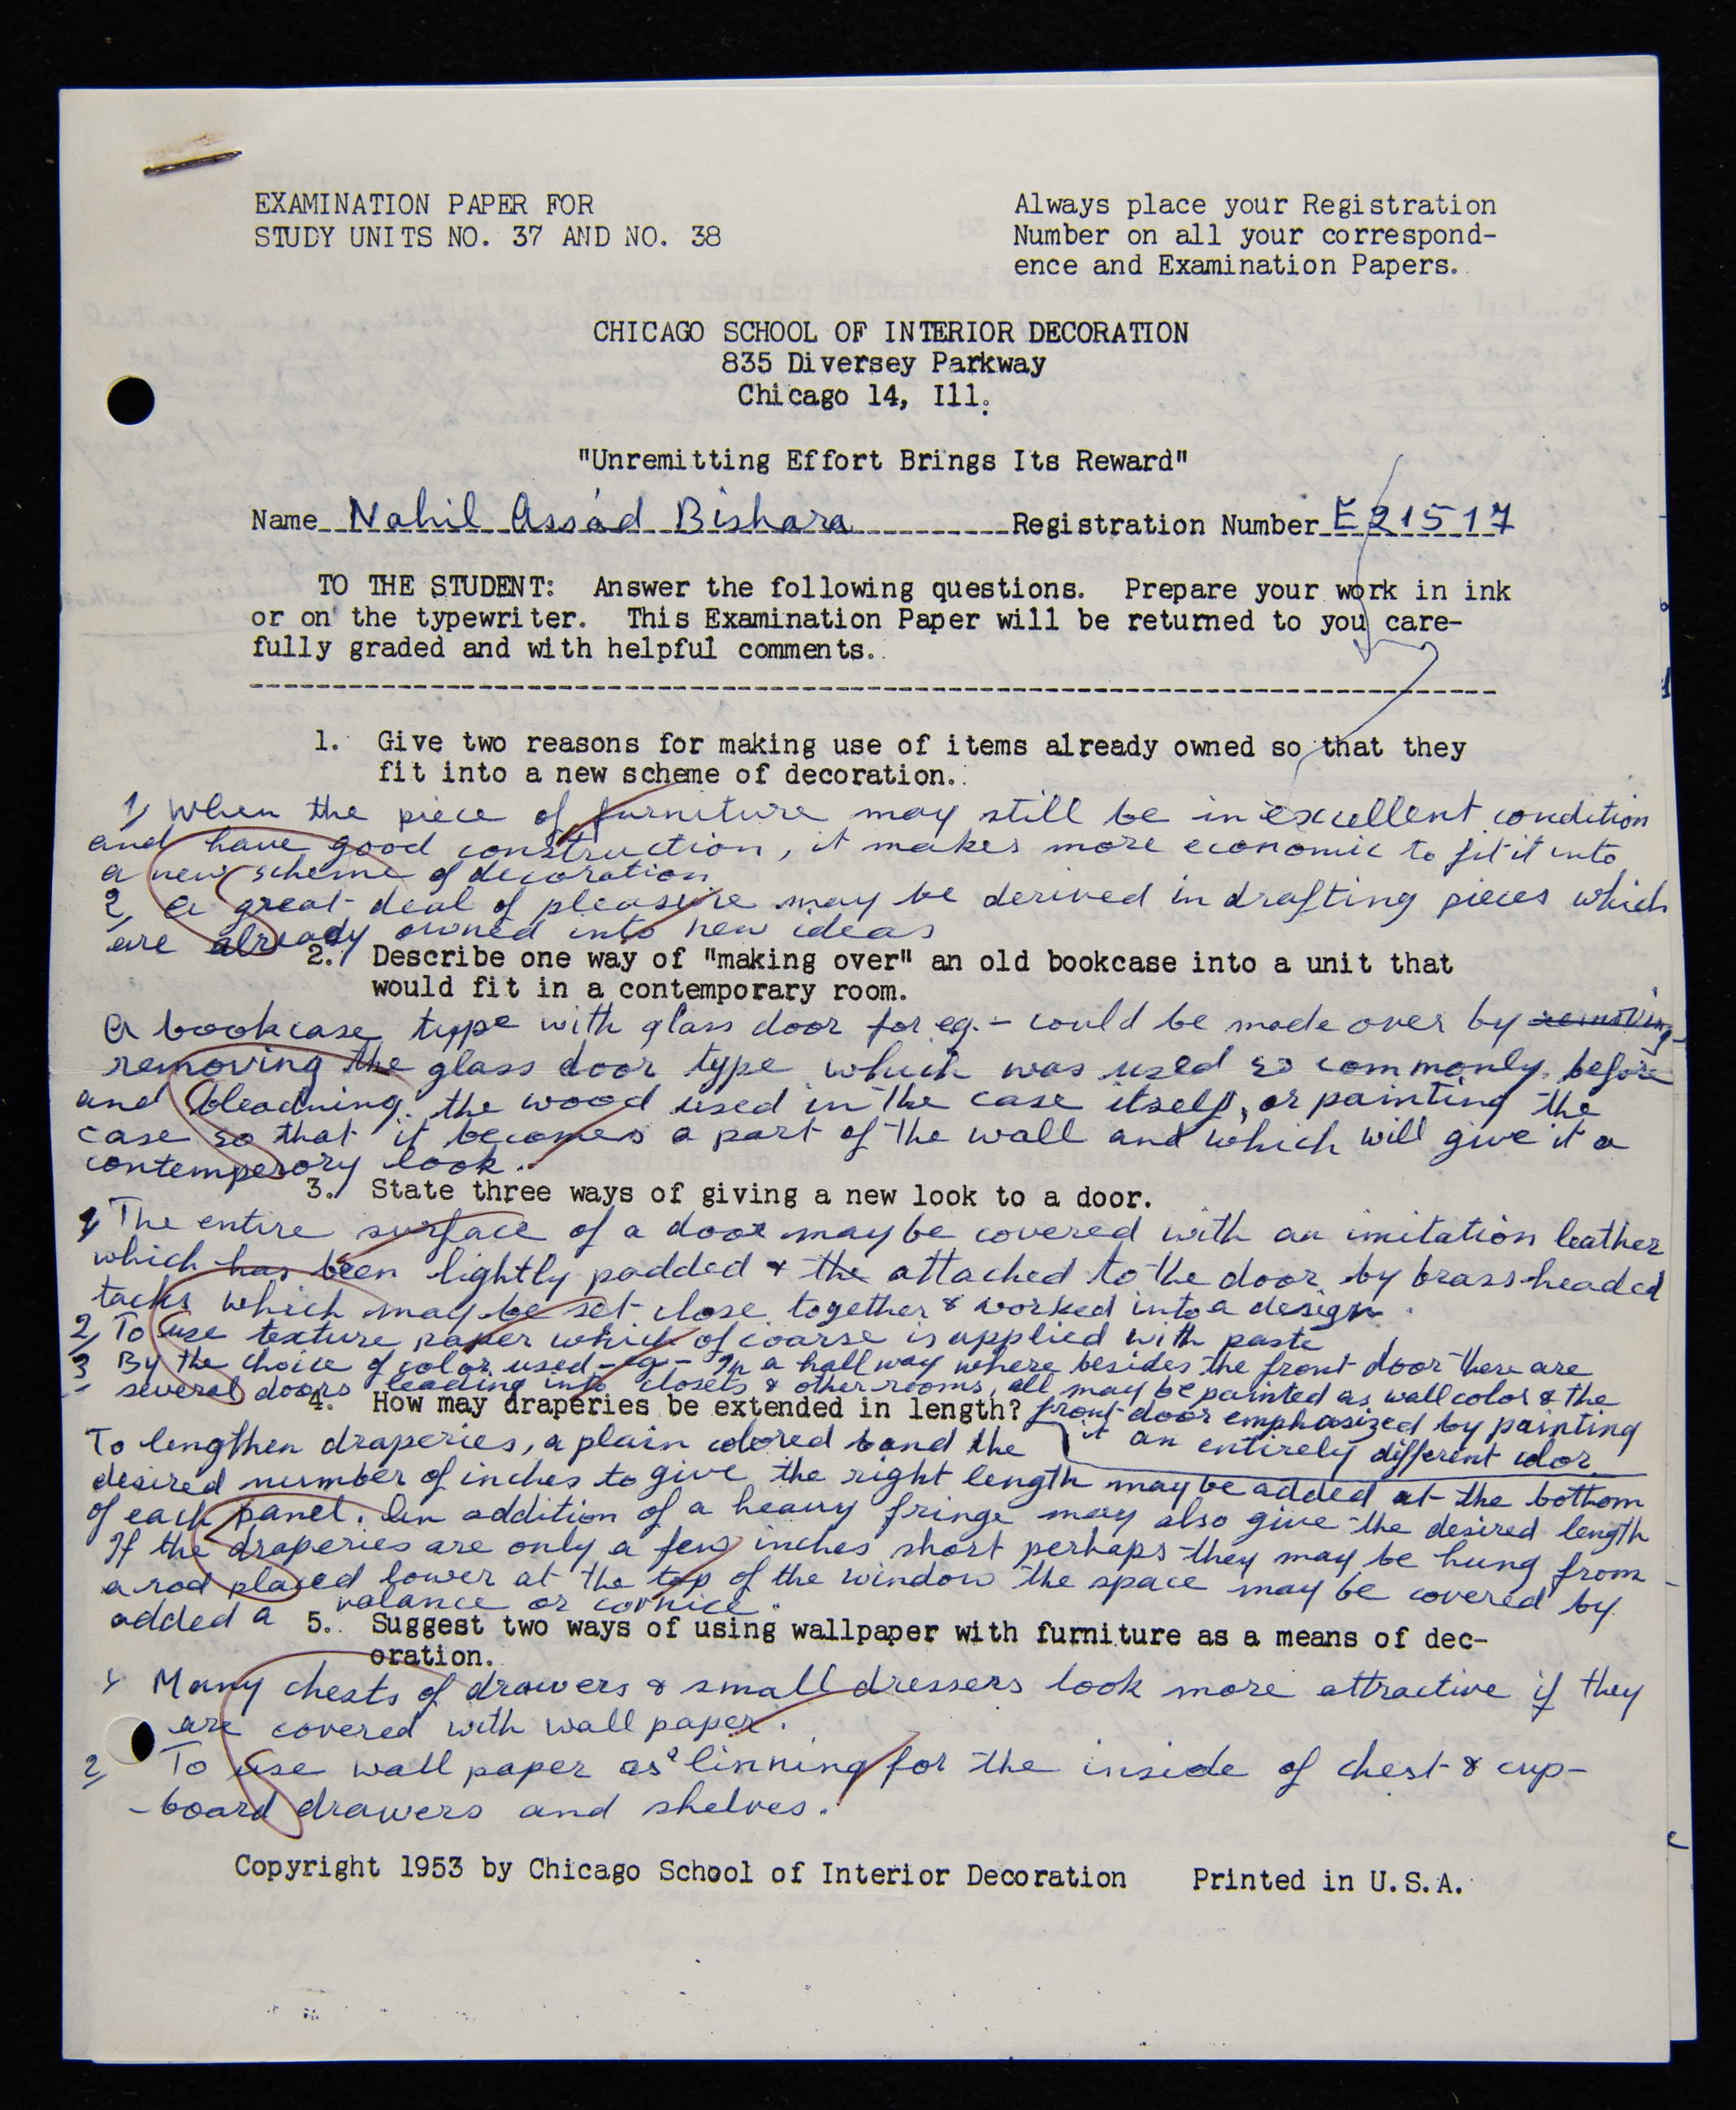 EXAMINATION PAPER FOR
STUDY UNITS NO. 37 AND NO. 38
Always place your Registration
Number on all your correspond-
ence and Examination Papers.
CHICAGO SCHOOL OF INTERIOR DECORATION
835 Diversey Parkway
Chicago 14, Ill.
"Unremitting Effort Brings Its Reward"
Name Nahil Assád Bishara Registration Number E21517
TO THE STUDENT: Answer the following questions. Prepare your work in ink
or on the typewriter. This Examination Paper will be returned to you care-
fully graded and with helpful comments.
1. Give two reasons for making use of items already owned so that they
fit into a new scheme of decoration.
1, When the piece of furniture may still be in excellent condition
and have good construction, it makes more economic to fit it into
a new scheme of decoration
2, A great deal of pleasure may be derived in drafting pieces which
are already owned into new ideas
2. Describe one way of "making over" an old bookcase into a unit that
would fit in a contemporary room.
A bookcase type with glass door for eg. - could be made over by removing
removing the glass door type which was used so commonly before
and bleadning the wood used in the case itself, or painting the
case so that it becomes a part of the wall and which will give it a
contemperory look.
3. State three ways of giving a new look to a door.
1, The entire surface of a door may be covered with an imitation leather
which has been lightly padded & the attached to the door by brass headed
tacks which may be set close together & worked into a design.
2, To use texture paper which of coarse is applied with paste
3 By the choice of color used - eg - In a hallway where besides the front door there are
several doors leading into closets & other rooms, all may be painted as wall color & the
4. How may draperies be extended in length?
front door emphasized by painting
it an entirely different color
To lengthen draperies, a plain colored band the
desired number of inches to give the right length may be added at the bottom
of each panel. An addition of a heavy fringe may also give the desired length
If the draperies are only a few inches short perhaps they may be hung from
a rod placed lower at the top of the window the space may be covered by
added a valance or cornice.
5. Suggest two ways of using wallpaper with furniture as a means of dec-
oration.
1 Many chests of drawers & small dressers look more attractive if they
are covered with wall paper.
2, To use wall paper as a linning for the inside of chest & cup-
-board drawers and shelves.
Copyright 1953 by Chicago School of Interior Decoration Printed in U.S.A.